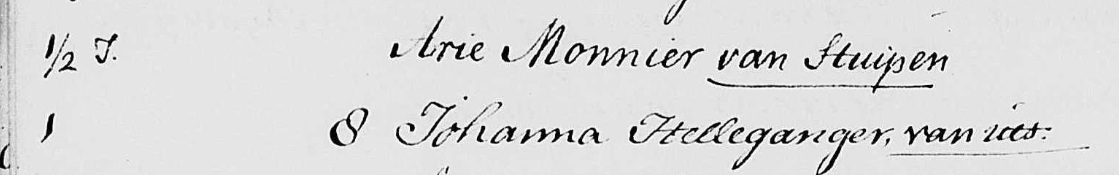 1/2 J. Arie Monnier van Stuipen
1 8 Johanna Helleganger, van